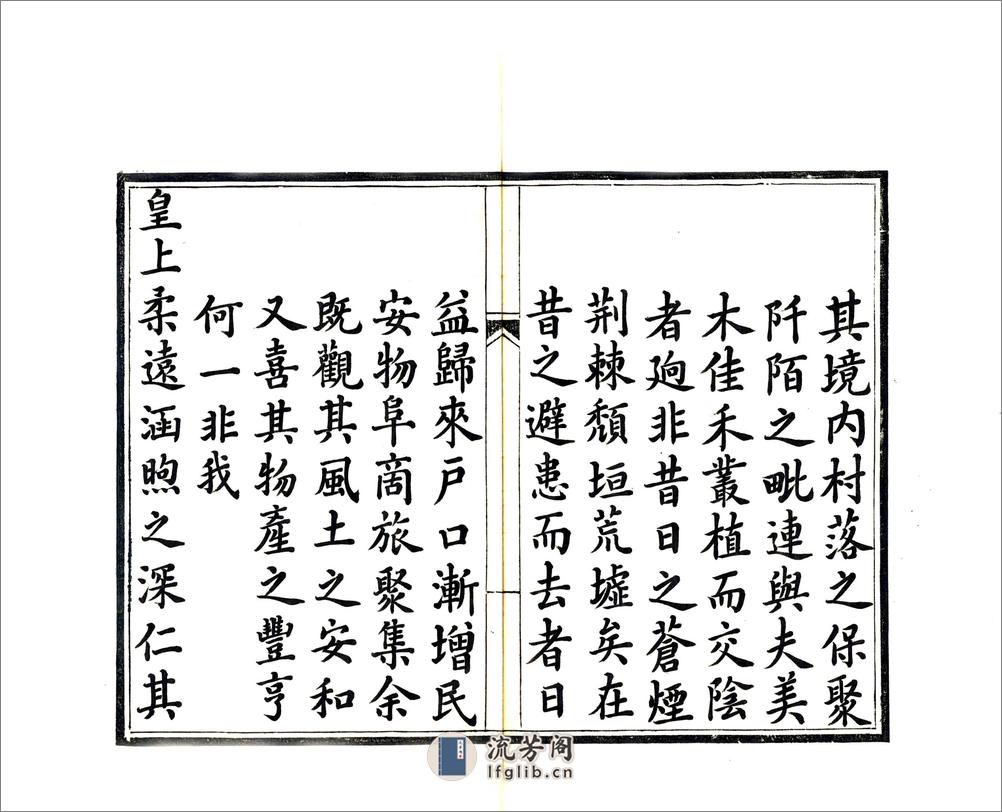 其境内村落之保聚
阡陌之毗連與夫美
木佳禾叢植而交陰
者迥非昔日之蒼煙
荆棘頽垣荒墟矣在
昔之避患而去者日
益歸來戸口漸增民
安物阜啇旅聚集余
既觀其風土之安和
又喜其物產之豐亨
何一非我
皇上柔遠涵煦之深仁其
流芳阁
lfglib.cn